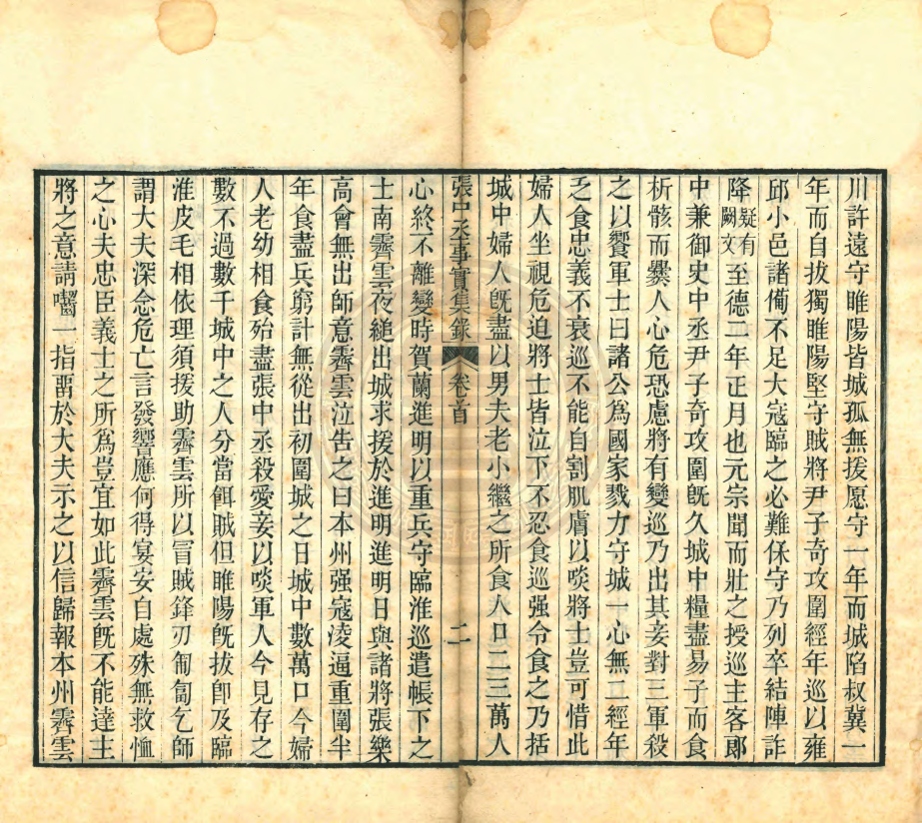 川許遠守睢陽皆城孤無援愿守一年而城陷叔冀一
年而自拔獨睢陽堅守賊將尹子奇攻圍經年巡以雍
邱小邑諸僃不足大寇臨之必難保守乃列卒結陣詐
降疑有闕文至德二年正月也元宗聞而壯之授巡主客郎
中兼御史中丞尹子奇攻圍旣久城中糧盡易子而食
析骸而爨人心危恐慮將有變巡乃出其妾對三軍殺
之以饗軍士曰諸公爲國家戮力守城一心無二經年
乏食忠義不衰巡不能自割肌膚以啖將士豈可惜此
婦人坐視危迫將士皆泣下不忍食巡强令食之乃括
城中婦人旣盡以男夫老小繼之所食人口二三萬人
張中丞事實集錄 卷首 二
心終不離變時賀蘭進明以重兵守臨淮巡遣帳下之
士南霽雲夜縋出城求援於進明進明日與諸將張樂
高會無出師意霽雲泣告之曰本州强寇淩逼重圍半
年食盡兵窮計無從出初圍城之日城中數萬口今婦
人老幼相食殆盡張中丞殺愛妾以啖軍人今見存之
數不過數千城中之人分當餌賊但睢陽旣拔卽及臨
淮皮毛相依理須援助霽雲所以冒賊鋒刃匍匐乞師
謂大夫深念危亡言發響應何得宴安自處殊無救恤
之心夫忠臣義士之所爲豈宜如此霽雲旣不能達主
將之意請嚙一指畱於大夫示之以信歸報本州霽雲